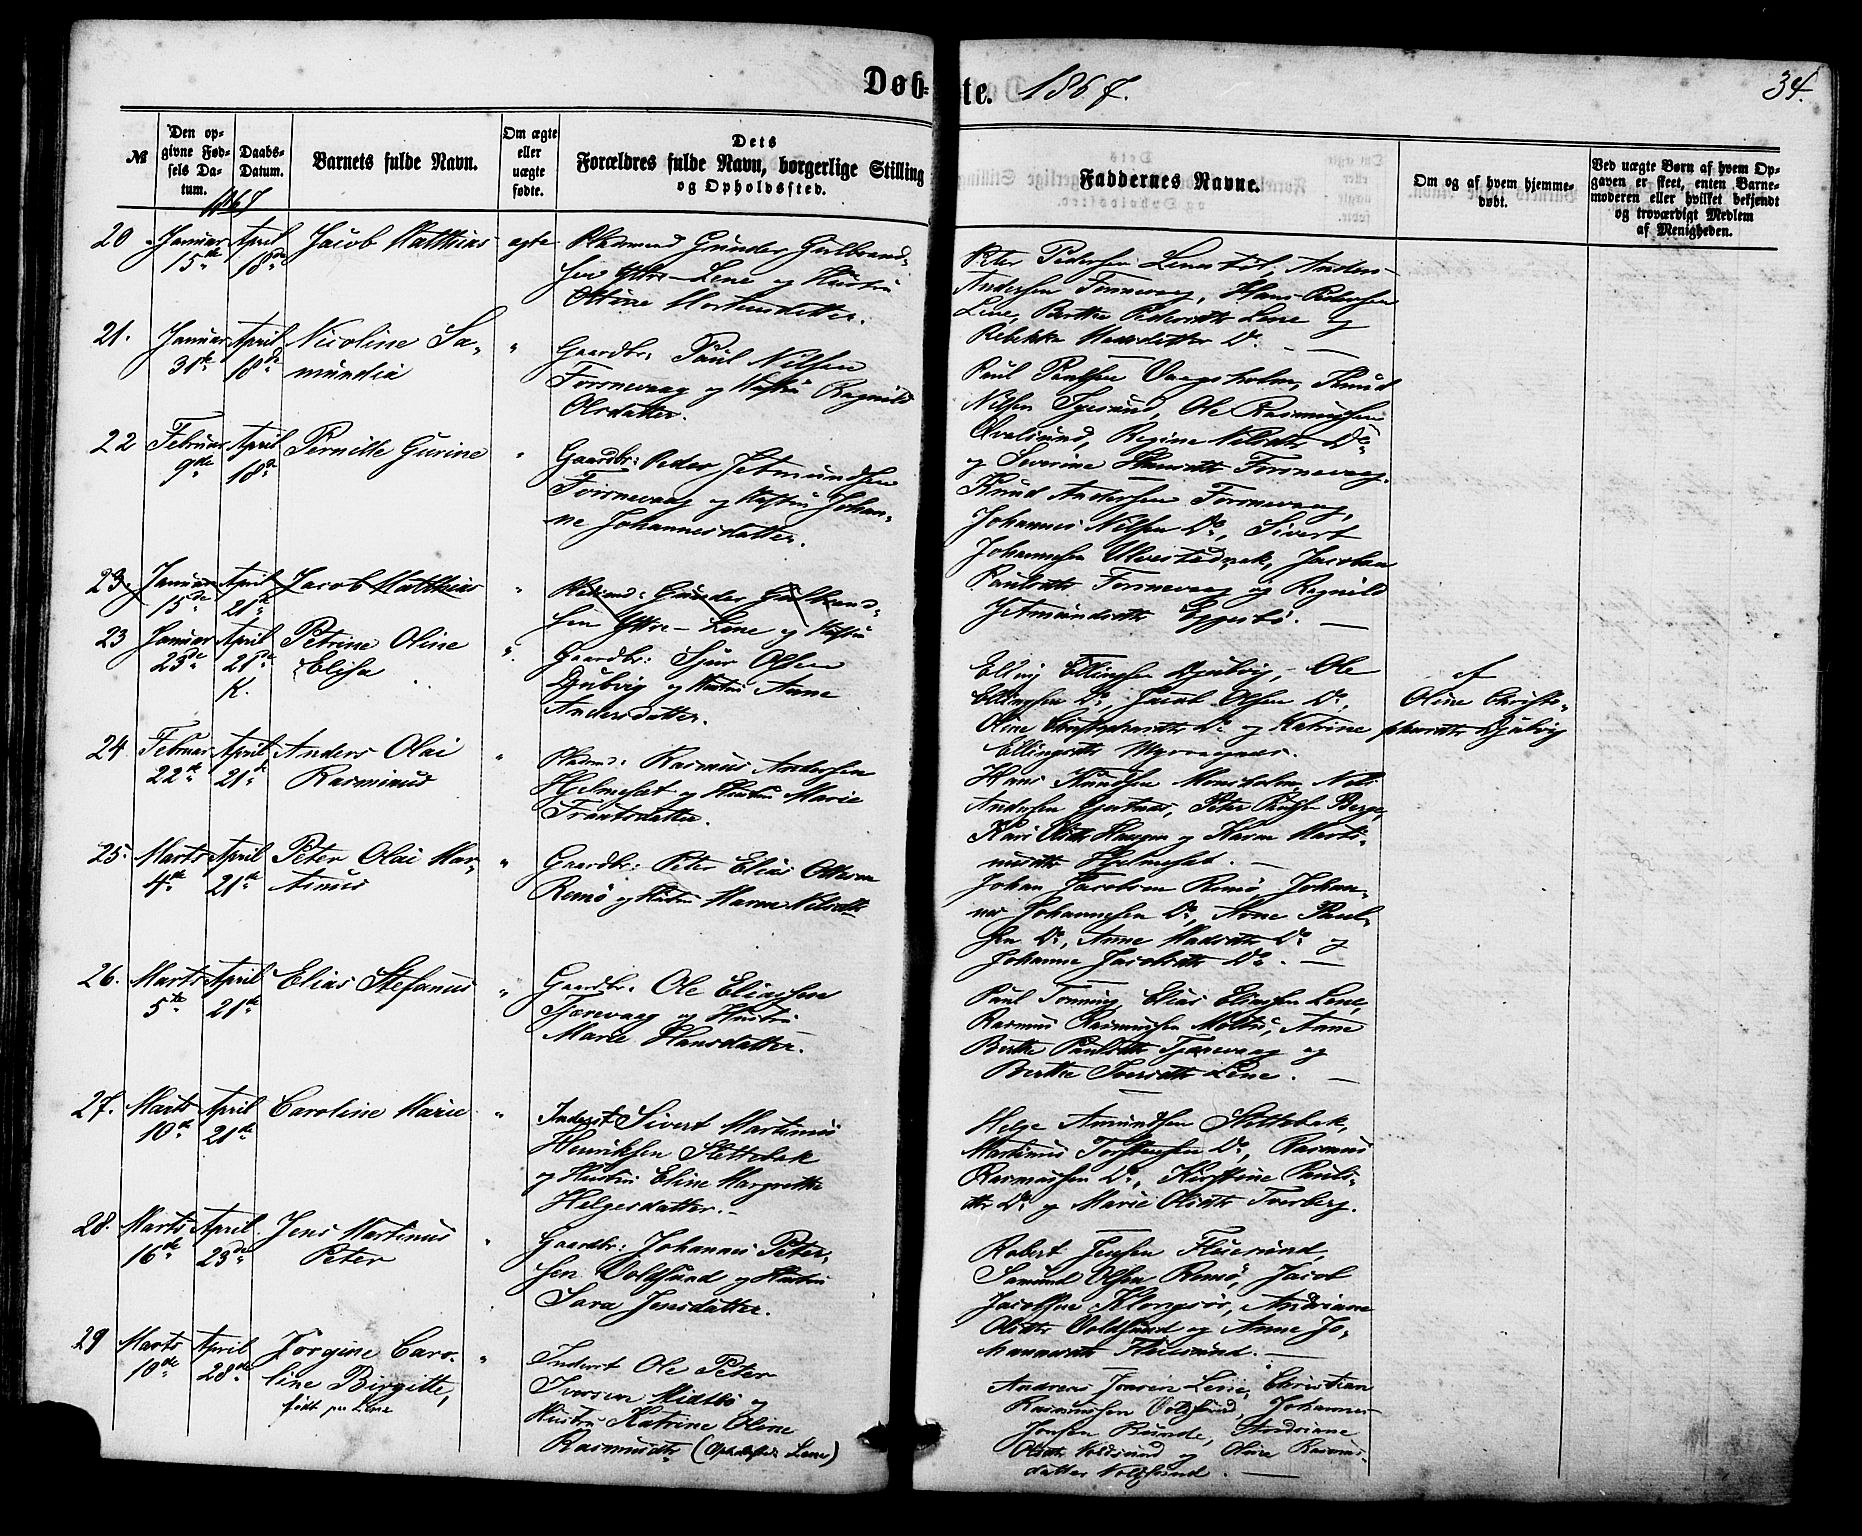 Døb-te. 1867.
34.
№
Den opgivne Fødsels Datum.
Daabs-Datum.
Barnets fulde Navn.
Om ægte eller uægte fødte.
Dets
Forældres fulde Navn, borgerlige Stilling
og Opholdssted.
Faddernes Navne.
Om og af hvem hjemmedøbt.
Ved uægte Børn af hvem Opgaven er skeet, enten Barnemoderen eller hvilket bekjendt og troværdigt Medlem af Menigheden.
1867
20 Januar 15de April 18de Jacob Matthias ægte
Gunder Gulbrand-
sen Ytre-Lene og Hustru
Oline Mortensdatter.
Peter Pedersen Lenestøl, Anders
Andersen Torvevaag, Hans Pedersen
Lene, Berthe Pedersdtr Lene og
Rebekka Madsdatter Do.
21. Januar 31te April 18de Nicoline Samundia "
Gaardbr: Paul Nilsen
og Hustru Ragnild
Olsdatter.
Paul Paulsen Vaagsholm, Knud
Nilsen Igesund, Ole Rasmussen
Qvalsund, Regine Nilsdtr Do
og Severine
22 Februar 9de April 18de Pernille Gurine "
Gaardbr: Peder Jetmundsen
og Hustru Johan-
ne Johannesdatter.
Knud Andersen
Johannes Nilsen Do, Sivert
Johannesen Ulvestadbak, Jacobea
Paulsdtr og Ragnild
Jetmundsdtr Eggesbø.
23. Januar 15de April 21de Jacob Matthias "
Gunder Gulbrand-
sen Ytre-Lene og Hustru
23 Januar 23de April 21de K. Petrine Oline Elisa "
Gaardbr: Sjur Olsen
Djubvig og Hustru Anne
Andersdatter.
Elling Ellingsen Djubvig, Ole
Ellingsen Do, Jacob Olsen Do,
Oline Christophersdtr Do og Katrine
Ellingsdtr Myrvaagnes.
af
Oline Christo-
phersdtr Djubvig
24 Februar 22de April 21de Anders Olai Rasminus "
Rasmus Andersen
Hjelmeset og Hustru Marie
Truulsdatter.
Hans Knudsen Monsholm, Nils
Andersen Gjertnes, Peter Berge,
Kari Olsdtr Haugen og Karen Marti-
nusdtr Hjelmeset.
25. Marts 4de April 21de Peter Olai Martinus "
Gaardbr: Peter Elias Ottesen
Remø og Hustru Maren Nilsdtr
Johan Jacobsen Remø, Johan-
nes Johannesen Do, Arne Paul-
sen Do, Anne Madsdtr Do og
Johanne Jacobsdtr Do.
26. Marts 5te April 21de Elias Stefanus "
Gaardbr: Ole Eliassen
Tjørvaag og Hustru
Marie Hansdatter.
Paul Tonning, Elias Eliassen Lene,
Rasmus Rasmussen Moltu, Anne
Berthe Paulsdtr Tjørvaag og
Berthe Iversdtr Lene.
27. Marts 10de April 21de Caroline Marie "
Inderst Sivert Martinus
Henriksen Stettebak
og Hustru Eline Margrethe
Helgesdatter.
Helge Amundsen Stettebak,
Martinus Torstensen Do, Rasmus
Rasmussen Do, Kirstine Pauls-
dtr Do og Marie Olsdtr Tverberg.
28. Marts 16de April 23de Jens Martinus Peter "
Gaardbr: Johannes Peter-
sen Voldsund og Hustru
Sara Jensdatter.
Robert Jensen Fluesund,
Samund Olsen Remø, Jacob
Jacobsen Klongsør, Andriane
Olsdtr Voldsund og Anne Jo-
hannesdtr Fluesund.
29 Marts 19de April 28de Jørgine Caro-
line Birgitte,
født paa Lene "
Inderst Ole Peter
Iversen Midtbø og
Hustru Katrine Oline
Rasmusdtr (Opholdssted Lene)
Andreas Jonsen Lene, Christian
Rasmussen Voldsund, Johannes
Jonsen Runde, Andriane
Olsdtr Voldsund og Oline Rasmus-
datter Voldsund.